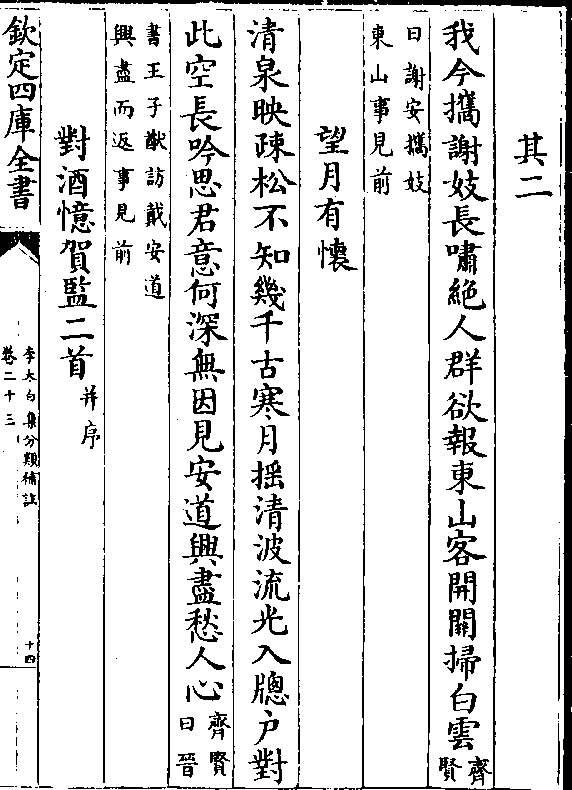 其二
我今攜謝妓長嘯絶人群欲報東山客開關掃白雲齊賢
曰謝安攜妓
東山事見前
望月有懷
清泉映疎松不知幾千古寒月揺清波流光入牕户對
此空長吟思君意何深無因見安道興盡愁人心齊賢曰晉
書王子猷訪戴安道
興盡而返事見前
對酒憶賀監二首并序
欽定四庫全書
李太白集分類補註
卷二十三
十四